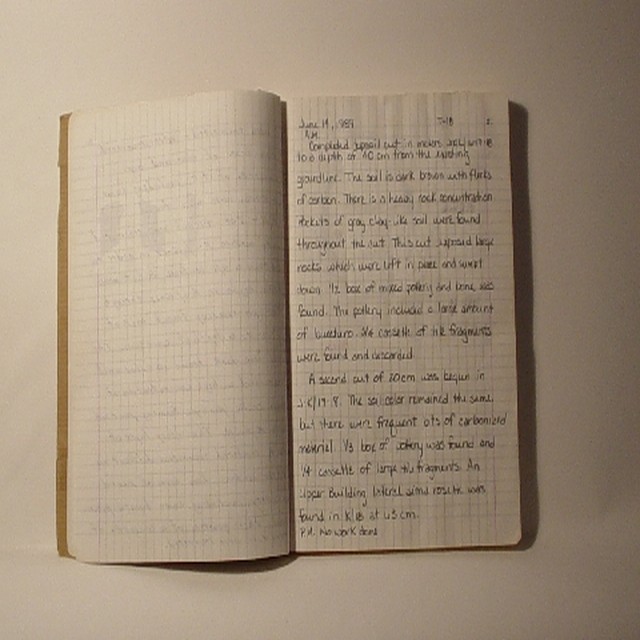 June 14, 1989 T-18 2
A.M.
Completed topsoil cut in meters
to a depth of 40 cm from the existing
groundline. The soil is dark brown with flecks
of carbon. There is a heavy rock concentration
Pockets of gray clay-like soil were found
throughout the cut. This cut exposed large
rocks which were left in place and swept
down. 1/2 box of mixed pottery and bone was
found. The pottery included a large amount
of bucchero. 3/4 cassette of tile fragments
were found and discarded
A second cut of 20cm was begun in
The soil color remained the same,
but there were frequent bits of carbonized
material. 1/3 box of pottery was found and
1/4 cassette of large tile fragments. An
Upper Building lateral sima rosette was
found in K/18 at 43 cm.
P.M. No work done